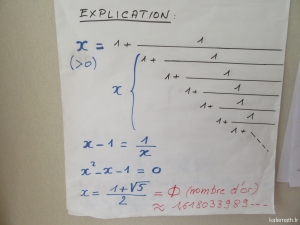 EXPLICATION:
x = 1 + 1
(>0)
1 + 1
x
1 + 1
1 + 1
1 + 1
1 + 1
1 + ...
x - 1 = 1/x
x² - x - 1 = 0
x = (1+√5)/2 = Φ (nombre d'or)
≈ 1,618033989...
kalemath.fr